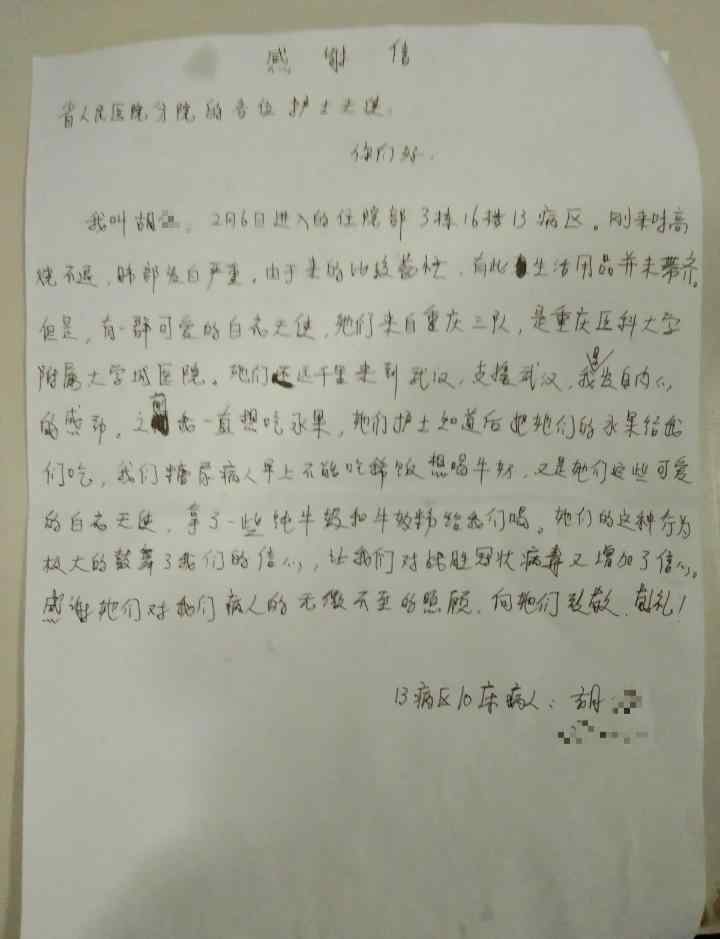 感谢信
省人民医院分院的各位护士天使.
你们好.
我叫胡 。2月6日进入的住院部3栋16楼13病区。刚来时高
烧不退,肺部发白严重,由于来的比较 ,有些生活用品并未带齐.
但是,有一群可爱的白衣天使,她们来自重庆三队,是重庆医科大学
附属大学城医院。她们远千里来到武汉,支援武汉,我是发自内心
的感动。之前我一直想吃水果,她们护士知道后把她们的水果给我
们吃,我们糖尿病人早上不能吃稀饭想喝牛奶,又是她们这些可爱
的白衣天使,拿了一些纯牛奶和牛奶粉给我们喝。她们的这种行为
极大的鼓舞了我们的信心,让我们对战胜冠状病毒又增加了信心。
感谢她们对我们病人的无微不至的照顾.向她们致敬.敬礼!
13病区10床病人:胡